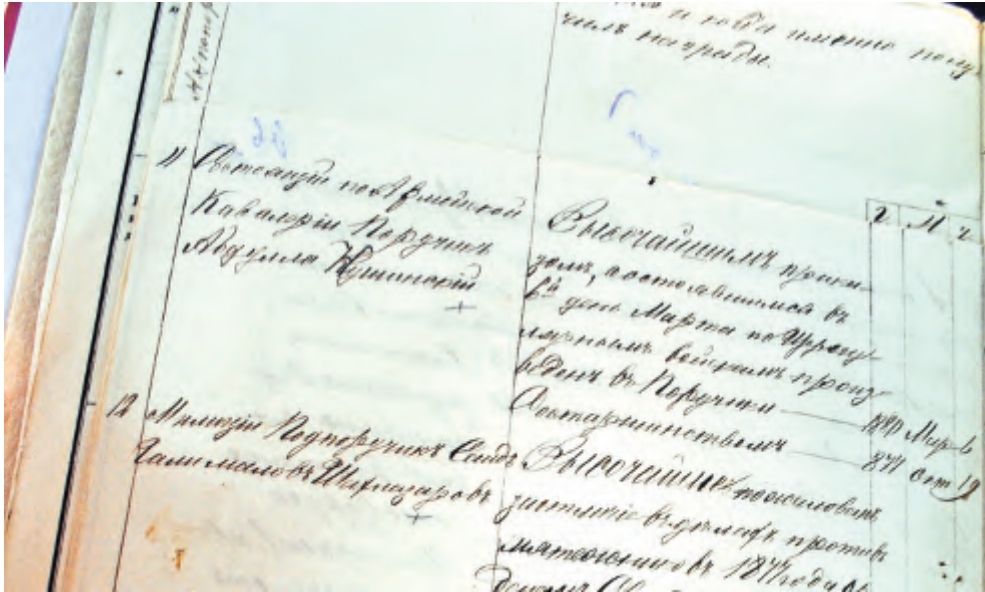 и когда именно полу-
чилъ награды.
11 Состоящій по Армейской
Кавалеріи Поручикъ
Абдулла
Высочайшимъ прика-
зомъ, состоявшимся въ
6й день Марта по Иррегу-
лярнымъ войскамъ произ-
веденъ въ Поручики — 1880 Мар. 6
Состаршинствомъ — 877 Окт 19
Г М Ч
12 Милиціи Подпоручикъ Саидъ
Шихназаровъ
Высочайше пожалованъ
въ дѣлахъ противъ
мятежниковъ 1877 года